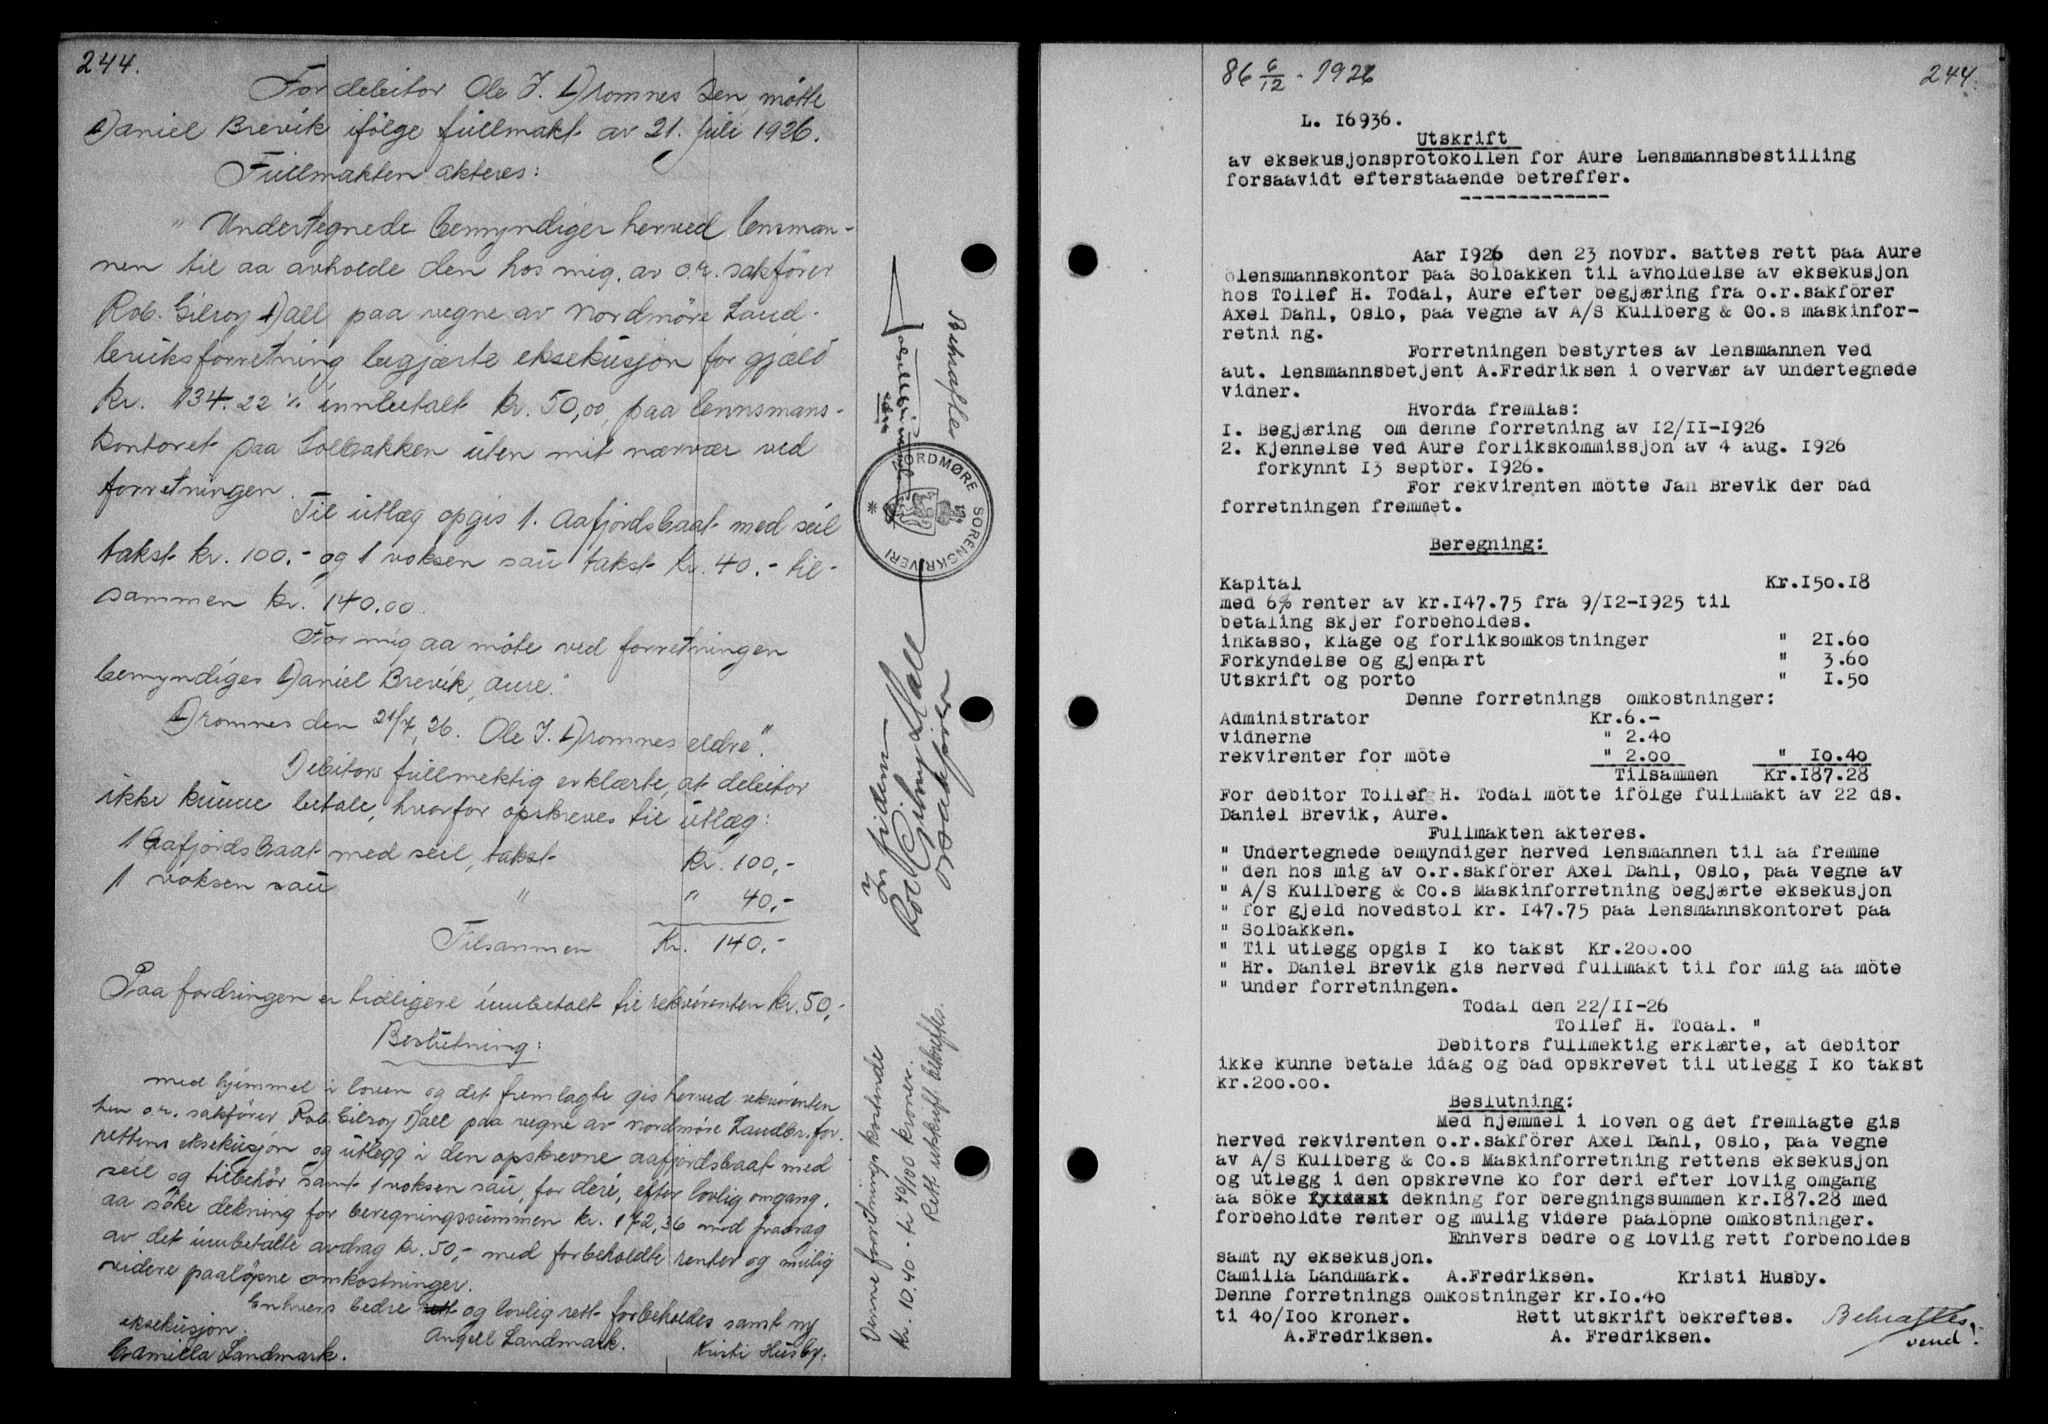 244.
For debitor Ole J. Dromnes den mötte
Daniel Brevik ifölge fullmakt av 21. juli 1926.
Fullmakten akteres:
" Undertegnede bemyndiger herved lensman-
nen til aa avholde den hos mig av o.r. sakförer
Rob. Gilroy Dall paa vegne av Nordmöre Land-
bruksforretning begjærte eksekusjon for gjæld
kr. 134.22 ./. innbetalt kr. 50,00 paa lennsmans-
kontoret paa Solbakken uten mit nærvær ved
forretningen.
Til utlæg opgis 1. Aafjordsbaat med seil
takst kr. 100.- og 1 voksen sau takst kr. 40.- til-
sammen kr. 140.00.
For mig aa möte ved forretningen
bemyndiges Daniel Brevik, Aure."
Dromnes den 21/7, 26. Ole J. Dromnes eldre".
Debitors fullmektig erklærte, at debitor
ikke kunne betale, hvorfor opskreves til utlæg:
1 Aafjordsbaat med seil, takst kr. 100,-
1 voksen sau " " 40,-
Tilsammen Kr. 140.-
Paa fordringen er tidligere innbetalt til rekvirenten kr. 50,-
Beslutning:
Med hjemmel i loven og det fremlagte gis herved rekvirenten
o.r. sakförer Rob. Gilroy Dall paa vegne av Nordmöre Landbr.for.
rettens eksekusjon og utlegg i den opskrevne aafjordsbaat med
seil og tilbehör samt 1 voksen sau, for deri, efter lovlig omgang,
aa söke dekning for beregningssummen kr. 172,36 med fradrag
av det innbetalte avdrag kr. 50,- med forbeholdte renter og mulig
videre paalöpne omkostninger.
Enhvers bedre og lovlig rett forbeholdes samt ny
eksekusjon.
Camilla Landmark. Angell Landmark. Kristi Husby.
Denne forretnings kostende
kr. 10.40 - ti 40/100 kroner.
Rett utskrift bekreftes.
Rob Gilroy Dall
o.r.sakförer
Bekreftes
NORDMØRE SORENSKRIVERI
86 6/12 - 1926
244.
L. I6936.
Utskrift
av eksekusjonsprotokollen for Aure Lensmannsbestilling
forsaavidt efterstaaende betreffer.
Aar 1926 den 23 novbr. sattes rett paa Aure
lensmannskontor paa Solbakken til avholdelse av eksekusjon
hos Tollef H. Todal, Aure efter begjæring fra o.r.sakförer
Axel Dahl, Oslo, paa vegne av A/S Kullberg & Co.s maskinfor-
retni ng.
Forretningen bestyrtes av lensmannen ved
aut. lensmannsbetjent A.Fredriksen i overvær av undertegnede
vidner.
Hvorda fremlas:
I. Begjæring om denne forretning av I2/II-I926
2. Kjennelse ved Aure forlikskommissjon av 4 aug. I926
forkynnt I3 septbr. I926.
For rekvirenten mötte Jan Brevik der bad
forretningen fremmet.
Beregning:
Kapital Kr.I50.I8
med 6% renter av kr.I47.75 fra 9/I2-I925 til
betaling skjer forbeholdes.
inkasso, klage og forliksomkostninger " 2I.60
Forkyndelse og gjenpart " 3.60
Utskrift og porto " I.50
Denne forretnings omkostninger:
Administrator Kr.6.-
vidnerne " 2.40
rekvirenter for möte " 2.00 " I0.40
Tilsammen Kr.I87.28
For debitor Tollef H. Todal mötte ifölge fullmakt av 22 ds.
Daniel Brevik, Aure.
Fullmakten akteres.
" Undertegnede bemyndiger herved lensmannen til aa fremme
" den hos mig av o.r.sakförer Axel Dahl, Oslo, paa vegne av
" A/S Kullberg & Co.s Maskinforretning begjærte eksekusjon
" for gjeld hovedstol kr. I47.75 paa lensmannskontoret paa
" Solbakken.
" Til utlegg opgis I ko takst Kr.200.00
" Hr. Daniel Brevik gis herved fullmakt til for mig aa möte
" under forretningen.
Todal den 22/II-26
Tollef H. Todal. "
Debitors fullmektig erklærte, at debitor
ikke kunne betale idag og bad opskrevet til utlegg I ko takst
kr.200.00.
Beslutning:
Med hjemmel i loven og det fremlagte gis
herved rekvirenten o.r.sakförer Axel Dahl, Oslo, paa vegne
av A/S Kullberg & Co.s Maskinforretning rettens eksekusjon
og utlegg i den opskrevne ko for deri efter lovlig omgang
aa söke dekning for beregningssummen kr.I87.28 med
forbeholdte renter og mulig videre paalöpne omkostninger.
Enhvers bedre og lovlig rett forbeholdes
samt ny eksekusjon.
Camilla Landmark. A.Fredriksen. Kristi Husby.
Denne forretnings omkostninger kr.I0.40
ti 40/I00 kroner. Rett utskrift bekreftes. Bekreftes
A.Fredriksen. A. Fredriksen. vend!